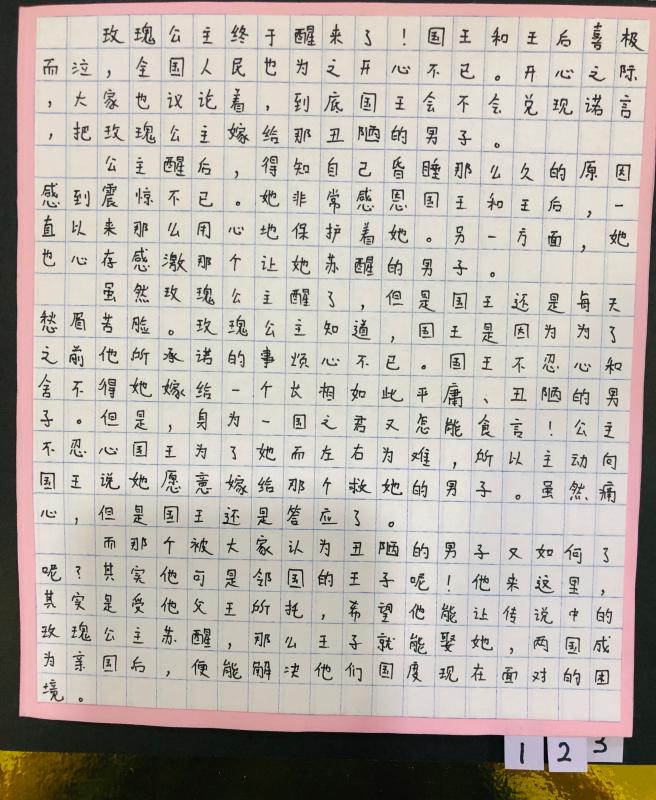 玫瑰公主终于醒来了！国王和王后喜极
而泣，全国人民也为之开心不已。开心之际
，大家也议论着，到底国王会不会兑现诺言
，把玫瑰公主嫁给那丑陋的男子。
公主醒后，得知自己昏睡那么久的原因
感到震惊不已。她非常感恩国王和王后，一
直以来那么用心地保护着她。另一方面，她
也心存感激那个让她苏醒的男子。
虽然玫瑰公主醒了，但是国王还是每天
愁眉苦脸。玫瑰公主知道，国王是因为为了
之前他所承诺的事烦心不已。国王不忍心和
舍不得她嫁给一个长相如此平庸、丑陋的男
子。但是，身为一国之君又怎能食言！公主
不忍心国王为了她而左右为难，所以主动向
国王说她愿意嫁给那个救她的男子。虽然痛
心，但是国王还是答应了。
而那个被大家认为丑陋的男子又如何了
呢？其实他可是邻国的王子呢！他来这里，
其实是受他父王所托，希望他能让传说中的
玫瑰公主苏醒，那么王子就能娶她，两国成
为亲国后，便能解决他们国度现在面对的困
境。
1 2 3